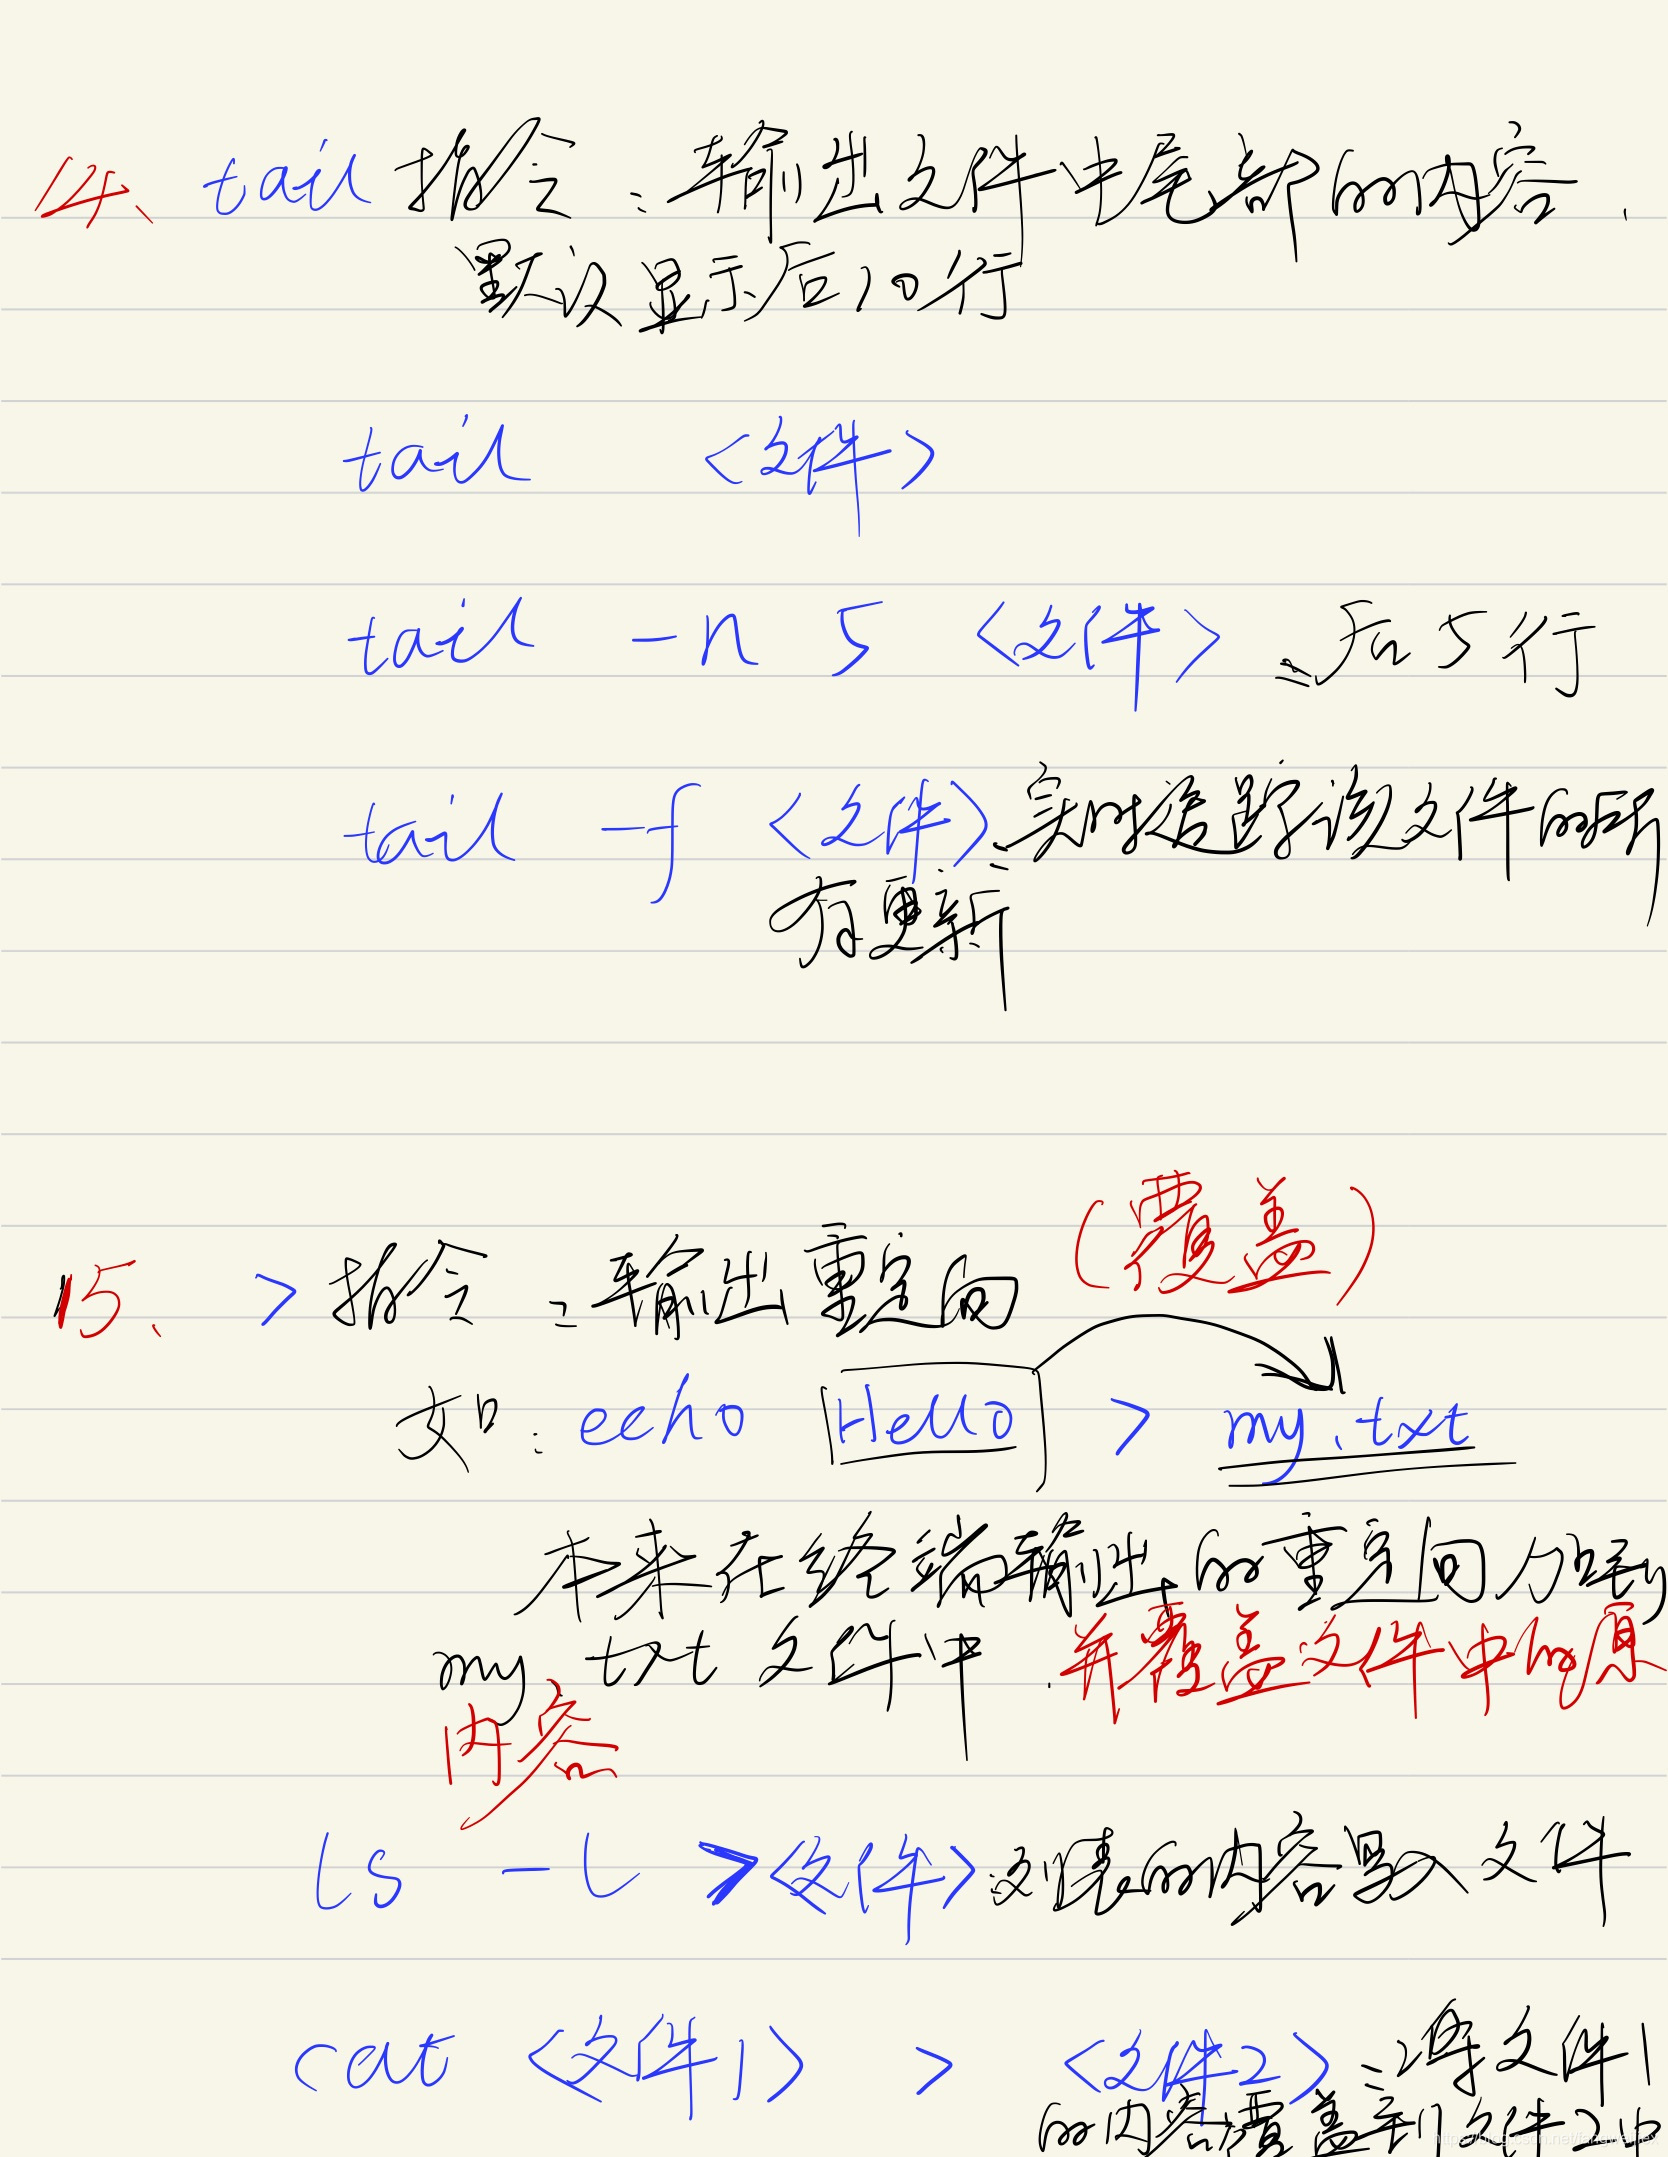 14、tail 指令：输出文件中尾部的内容.
默认显示后10行
tail <文件>
tail -n 5 <文件> : 后5行
tail -f <文件> : 实时追踪该文件的所
有更新
(覆盖)
15、 > 指令：输出重定向
如：echo Hello > my.txt
本来在终端输出的重定向加到
my.txt 文件中.并覆盖文件中的原
内容
ls -l > <文件> :列表的内容写入文件
cat <文件1> > <文件2> :将文件1
的内容覆盖到文件2中